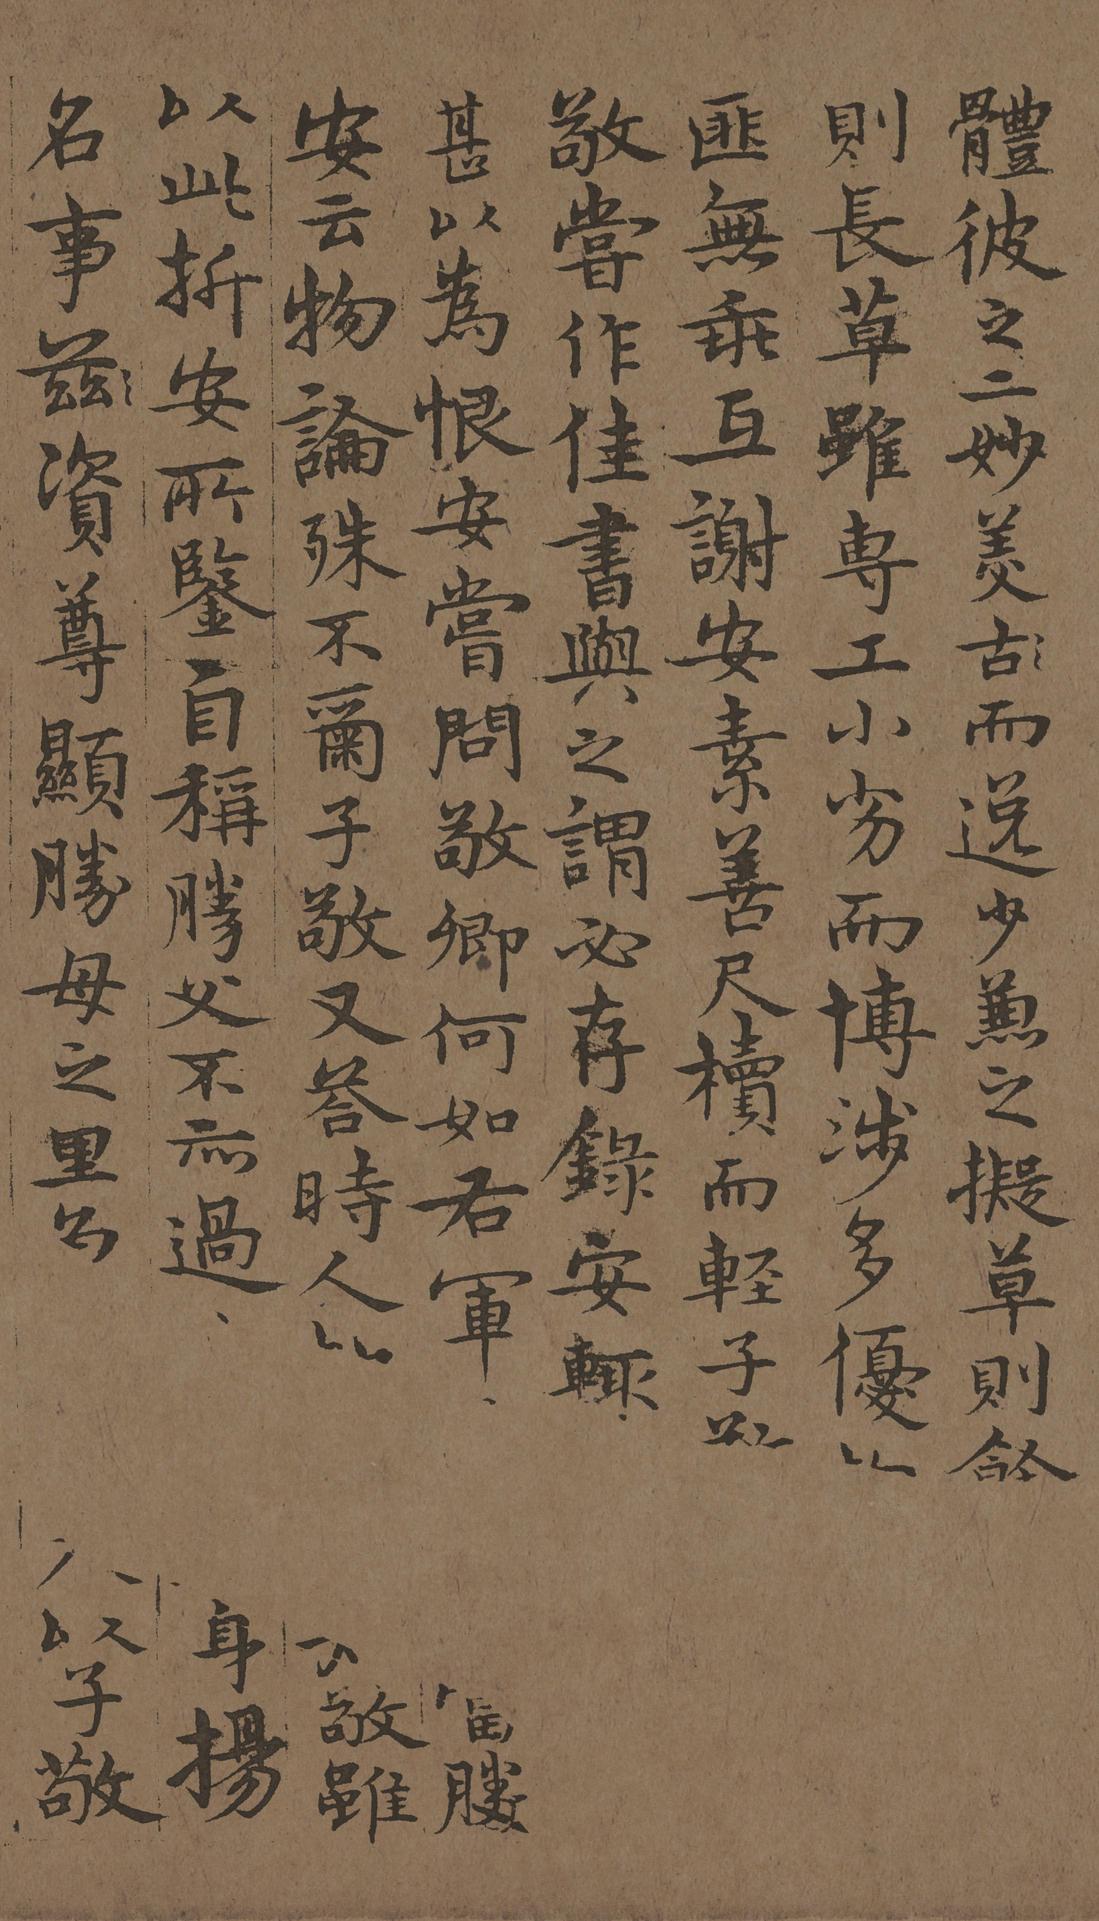 體彼之二妙美古而逸少兼之擬草則餘
則長草雖専工小劣而博涉多優
匪無乖互謝安素善尺櫝而輕子
敬嘗作佳書與之謂必存錄安輙
甚以為恨安嘗問敬卿何如右軍
安云物論殊不爾子敬又荅時人
以此折安所鑒自稱勝父不亦過
名事茲資尊顯勝母之里
當勝
敬雖
身揚
以子敬